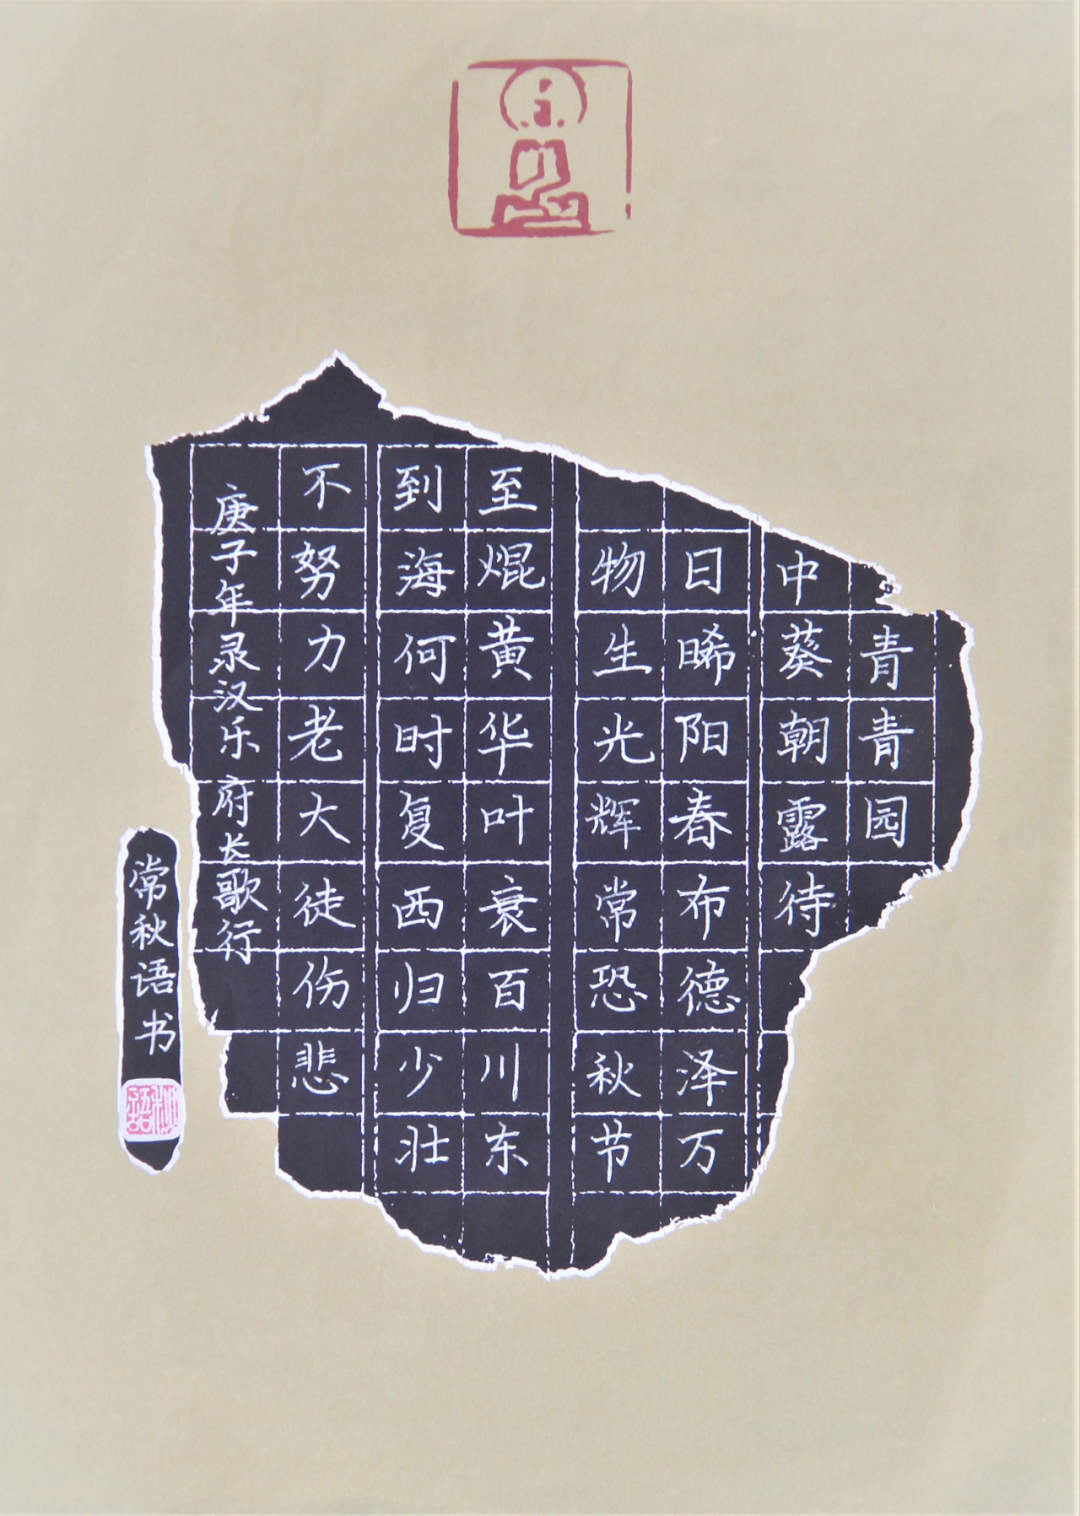 青青园
中葵朝露待
日晞阳春布德泽万
物生光辉常恐秋节
至焜黄华叶衰百川东
到海何时复西归少壮
不努力老大徒伤悲
庚子年录汉乐府长歌行
常秋语书
秋語